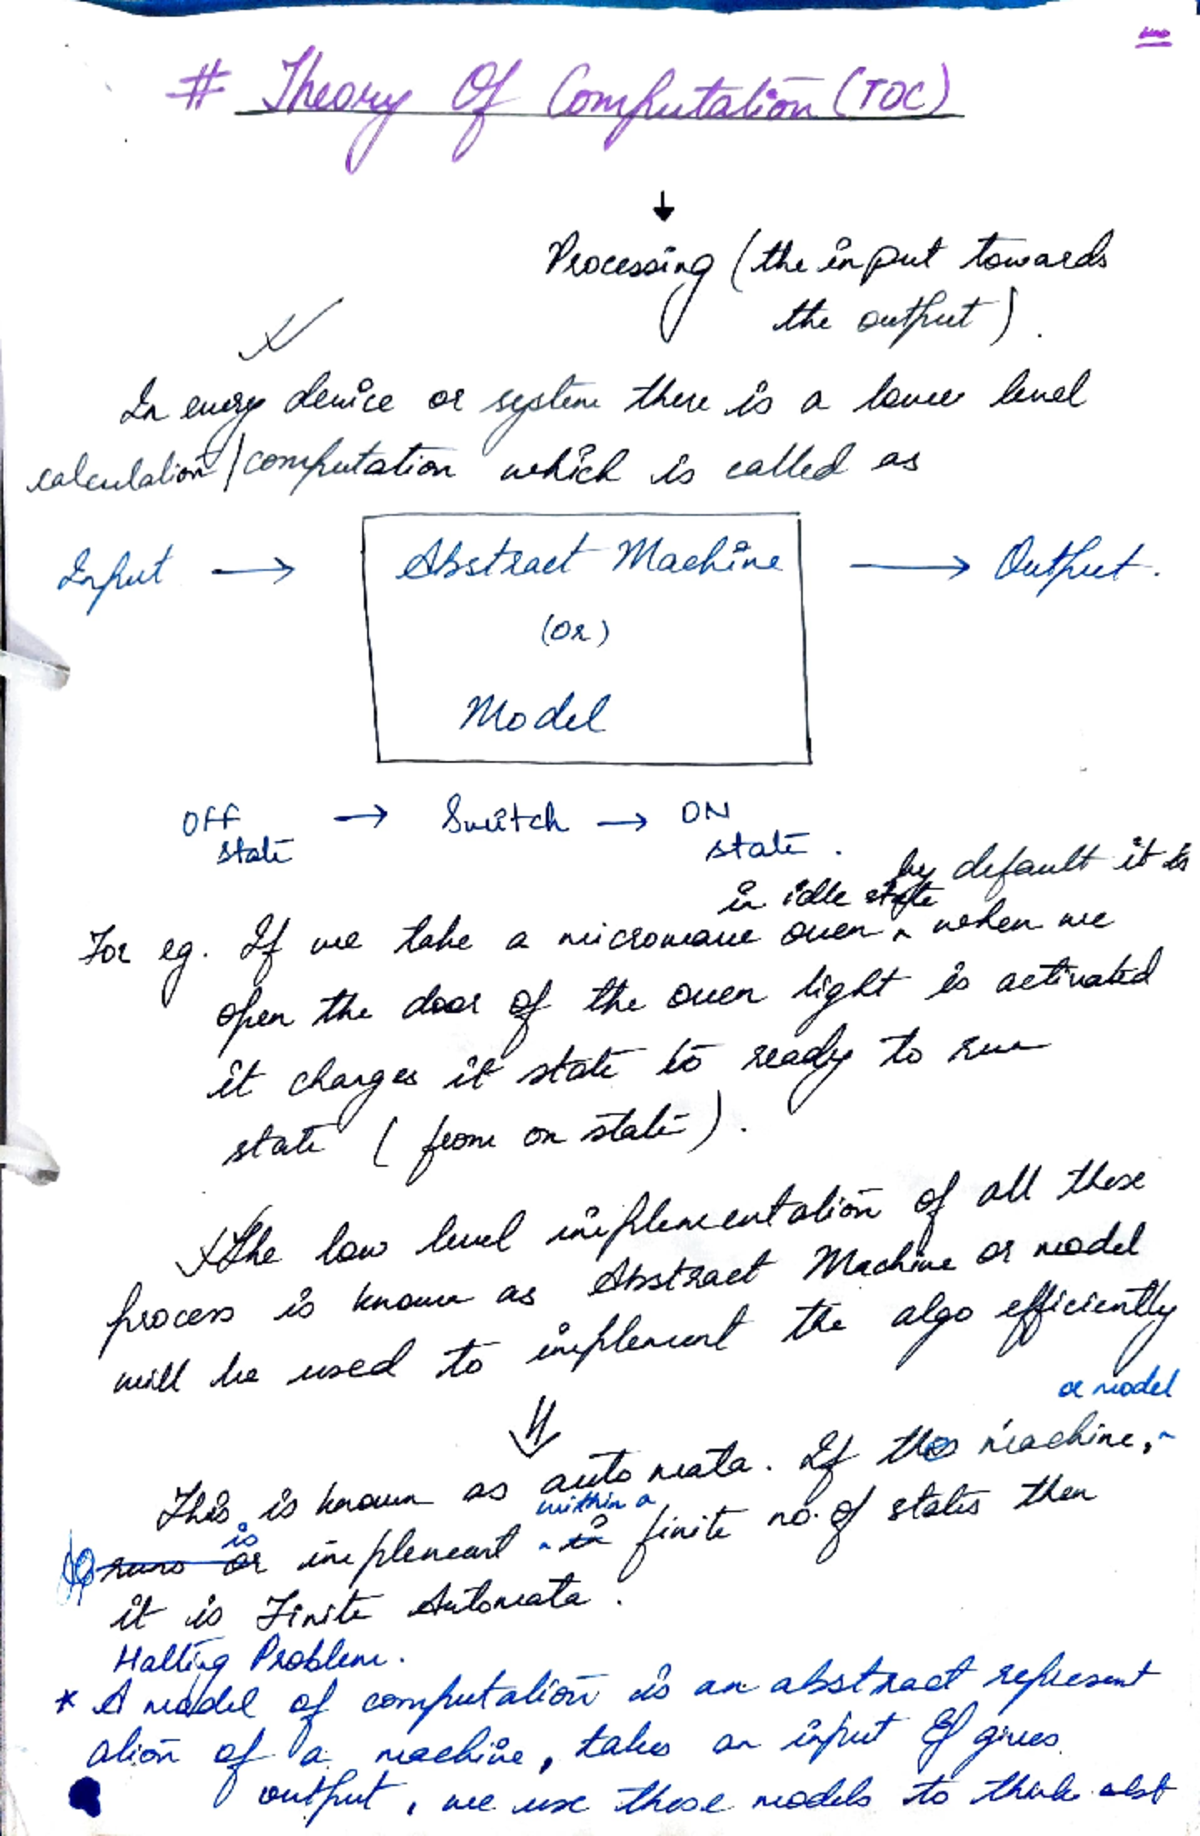 # Theory Of Computation (TOC)
↓
Processing (the input towards
the output).
In every device or system there is a lower level
calculation/computation which is called as
Input → Abstract Machine → Output.
(OR)
Model
OFF state → Switch → ON state.
by default it is
in idle state
For eg. If we take a microwave oven ^ when we
open the door of the oven light is activated
it changes it state to ready to run
state (from on state).
The low level implementation of all these
process is known as Abstract Machine or model
will be used to implement the algo efficiently
⇓
or model
This is known as automata. If the machine, ^
is implement within a finite no. of states then
it is Finite Automata.
Halting Problem.
* A model of computation is an abstract represent
ation of a machine, takes an input & gives
output, we use these models to think abt